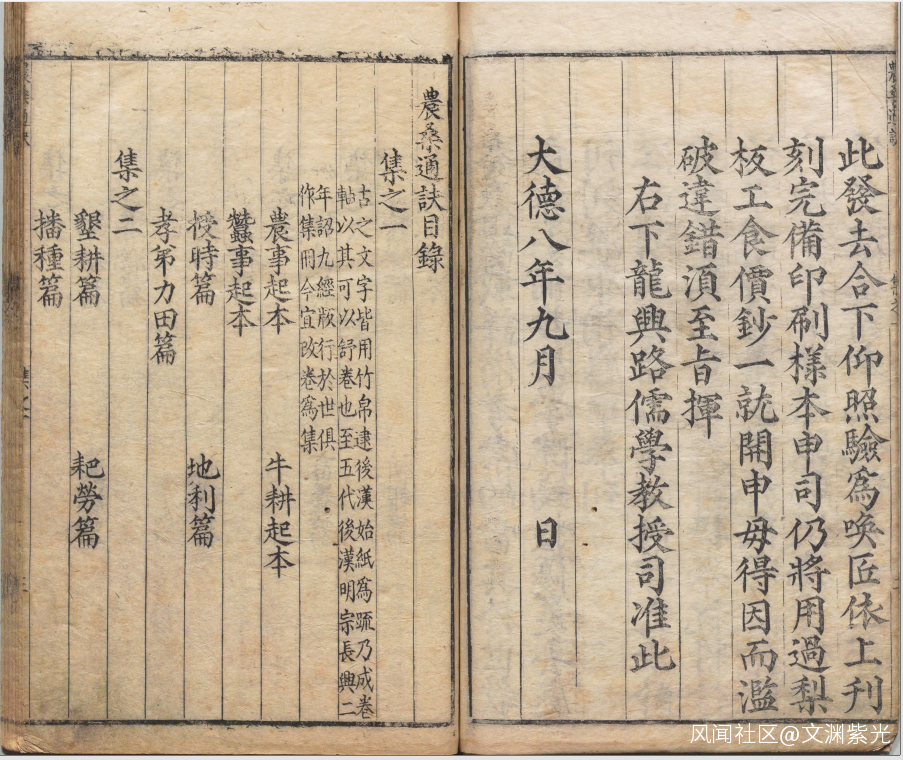 此發去合下仰照驗爲喚匠依上刋
刻完備印刷樣本申司仍將用過梨
板工食價鈔一就開申毋得因而濫
破違錯湏至旨揮
右下龍興路儒學教授司准此
大德八年九月 日
農桑通訣目錄
集之一
古之文字皆用竹帛逮後漢始紙爲䟽乃成卷
軸以其可以舒卷也至五代後漢明宗長興二
年詔九經版行於世俱
作集冊今宜改卷爲集
農事起本 牛耕起本
蠶事起本
授時篇 地利篇
孝弟力田篇
集之二
墾耕篇 耙勞篇
播種篇
风闻社区@文渊紫光